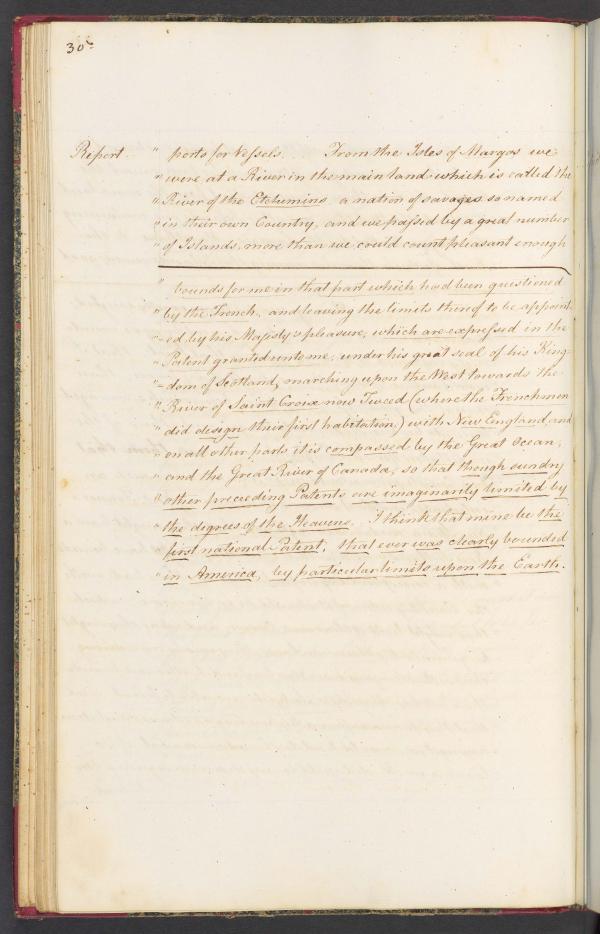 30
Report. " ports for Vessels.... From the Isles of Margos we
" were at a River in the main land which is called the
" River of the Etchimins a nation of savages so named
" in their own Country, and we passed by a great number
" of Islands, more than we could count pleasant enough
" bounds for me in that part which had been questioned
" by the French, and leaving the limits thereof to be appoint-
" -ed by his Majesty's pleasure, which are expressed in the
" Patent granted unto me, under his great seal of his King-
" -dom of Scotland, marching upon the West towards the
" River of Saint Croix now Tweed (where the Frenchmen
" did design their first habitation,) with New England and
" on all other parts it is compassed by the Great Ocean,
" and the Great River of Canada, so that though sundry
" other preceeding Patents are imaginarily limited by
" the degrees of the Heavens, I think that mine be the
" first national Patent, that ever was clearly bounded
" in America, by particular limits upon the Earth.